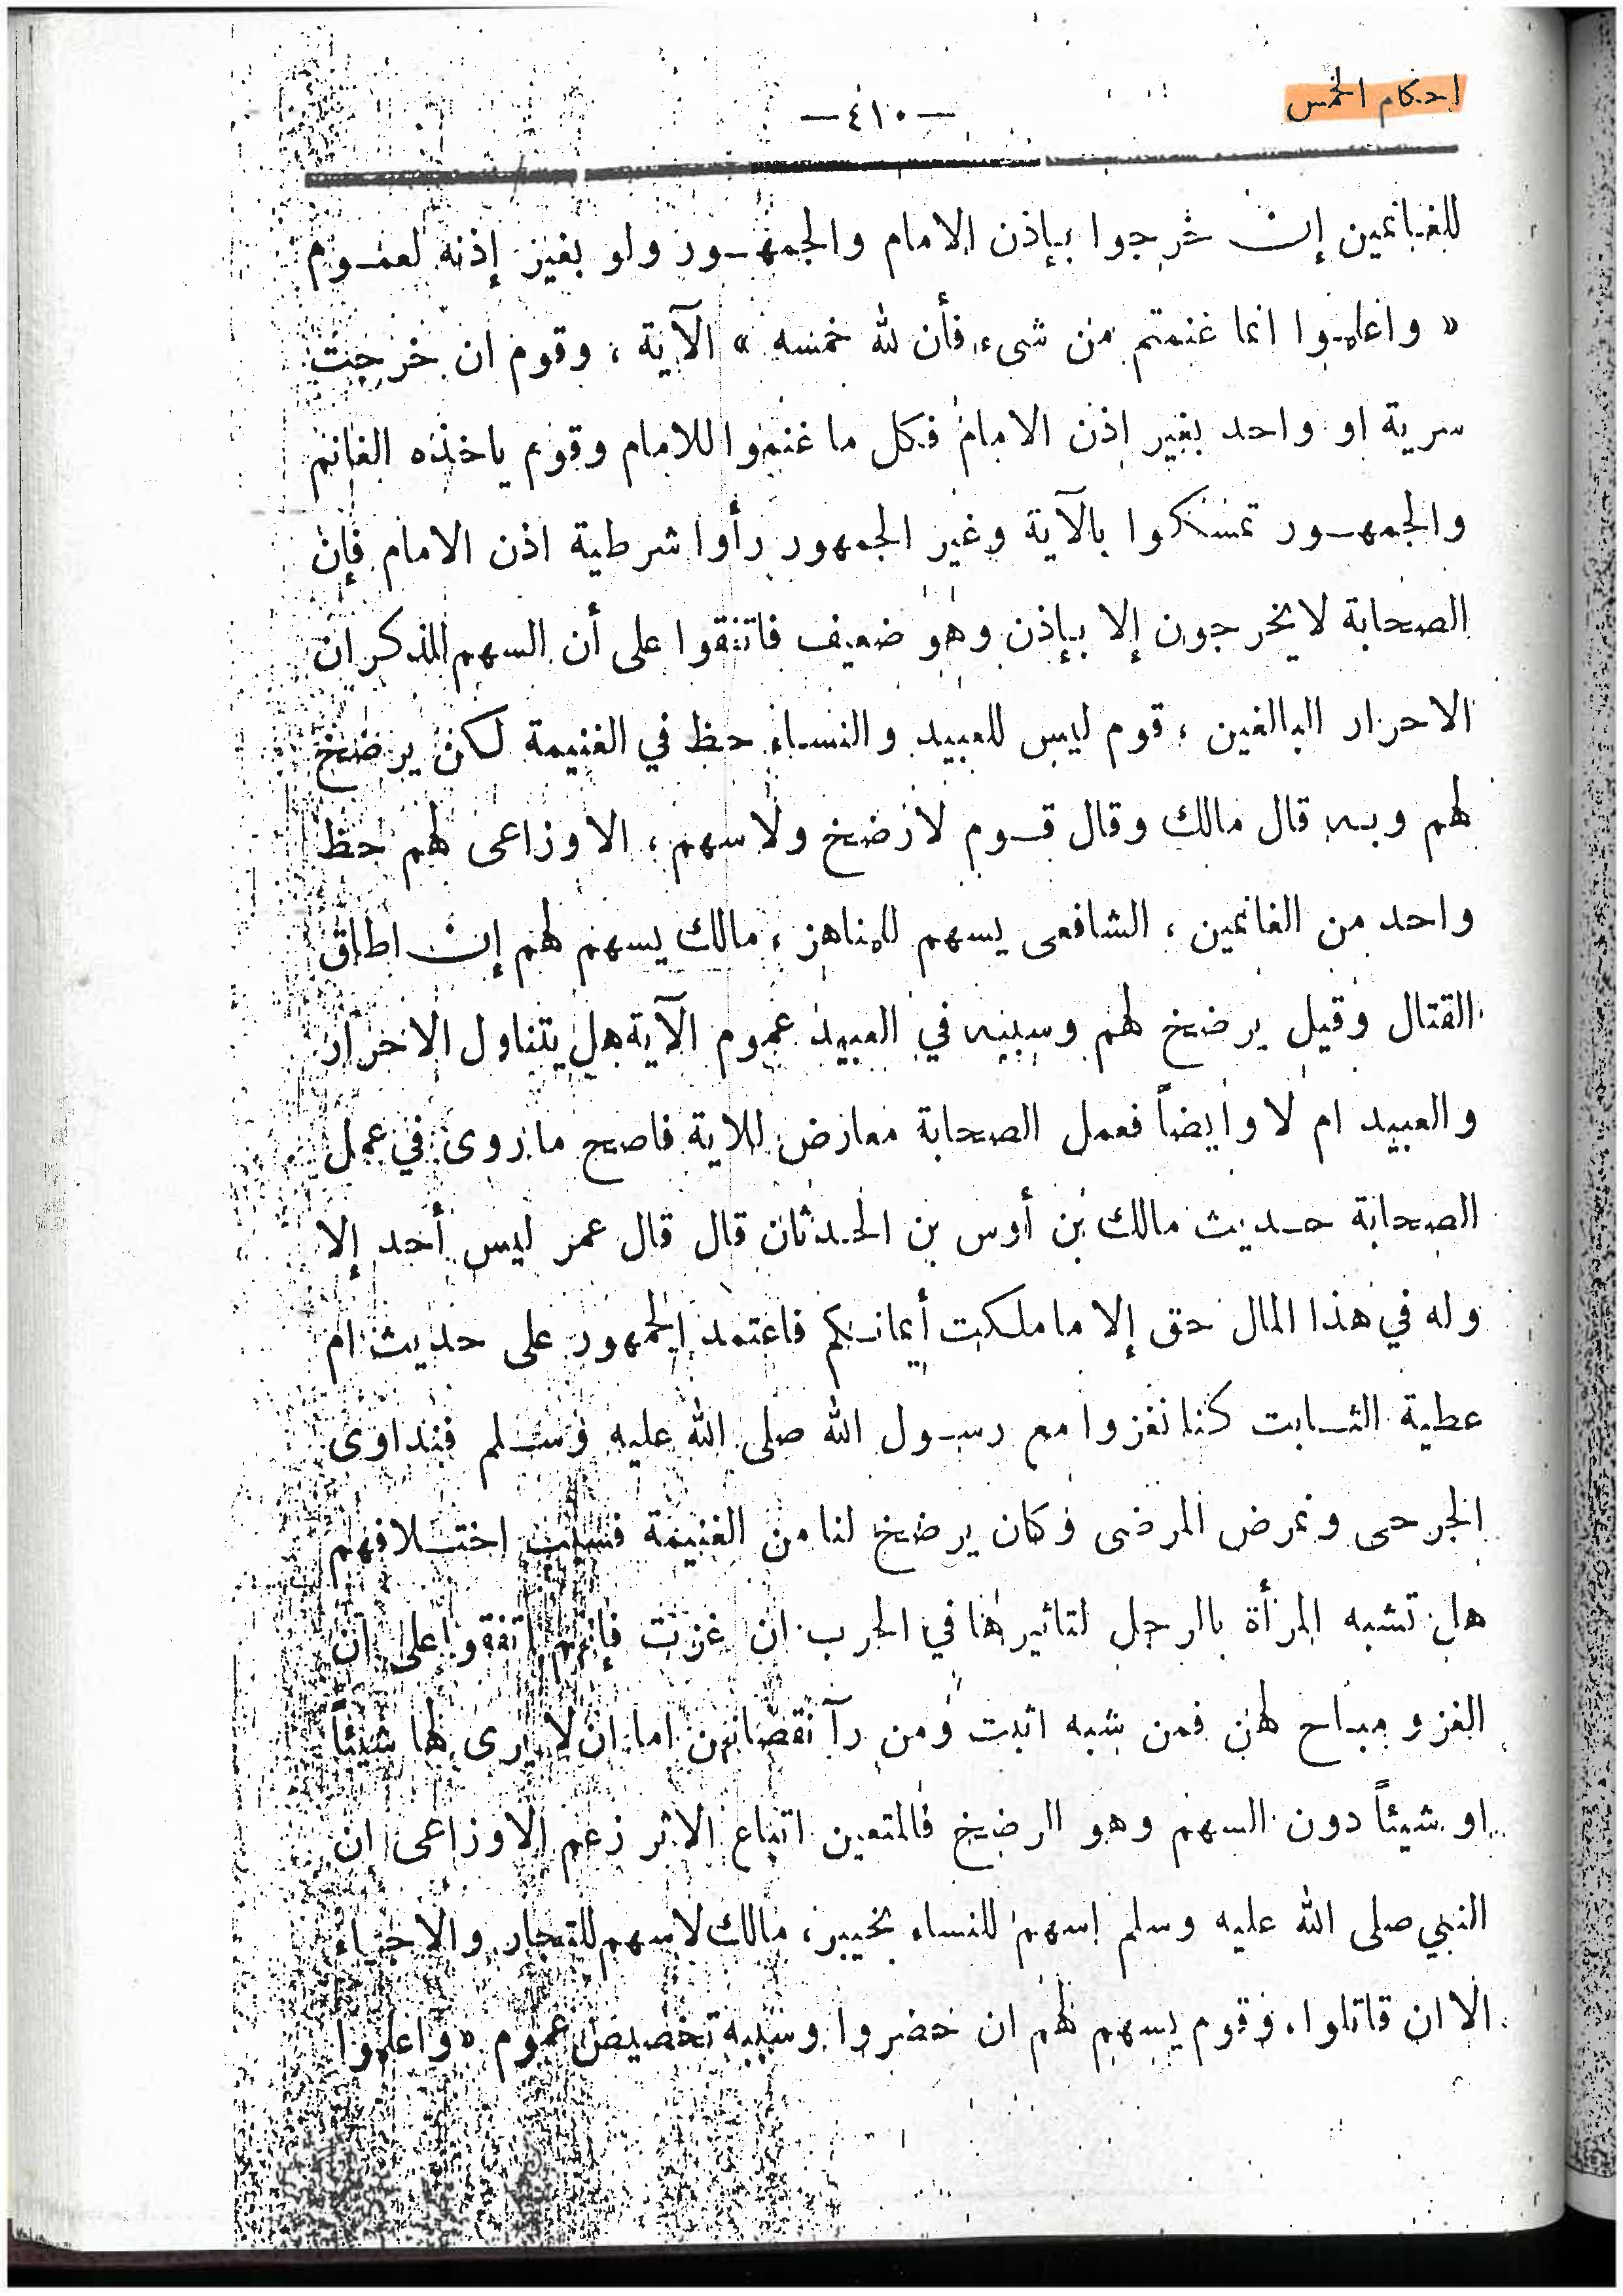 احكام الخمس
—٤١٠—
للغانمين إن خرجوا بإذن الامام والجمهور ولو بغير إذنه لعموم
« واعلموا انما غنمتم من شىء فأن لله خمسه » الآية ، وقوم ان خرجت
سرية او واحد بغير اذن الامام فكل ما غنموا للامام وقوم ياخذه الغانم
والجمهور تمسكوا بالآية وغير الجمهور رأوا شرطية اذن الامام فإن
الصحابة لا يخرجون إلا بإذن وهو ضعيف فاتفقوا على أن السهم للذكران
الاحرار البالغين ، قوم ليس للعبيد والنساء حظ في الغنيمة لكن يرضخ
لهم وبه قال مالك وقال قوم لا رضخ ولا سهم ، الاوزاعى لهم حظ
واحد من الغانمين ، الشافعى يسهم للمناهز ، مالك يسهم لهم إن اطاق
القتال وقيل يرضخ لهم وسببه في العبيد عموم الآية هل يتناول الاحرار
والعبيد ام لا وايضاً فعمل الصحابة معارض للاية فاصح ما روى في عمل
الصحابة حديث مالك بن أوس بن الحدثان قال قال عمر ليس أحد إلا
وله في هذا المال حق إلا ما ملكت أيمانكم فاعتمد الجمهور على حديث ام
عطية الثابت كنا نغزوا مع رسول الله صلى الله عليه وسلم فنداوى
الجرحى ونمرض المرضى وكان يرضخ لنا من الغنيمة فسبب اختلافهم
هل تشبه المرأة بالرجل لتاثيرها في الحرب ان غزت فإنهم اتفقوا على ان
الغزو مباح لهن فمن شبه اثبت ومن رآ نقصانهن اما ان لا يرى لها شيئاً
او شيئاً دون السهم وهو الرضخ فالمتعين اتباع الاثر زعم الاوزاعى ان
النبي صلى الله عليه وسلم اسهم للنساء بخيبر ، مالك لا سهم للتجار والاجراء
الا ان قاتلوا ، وقوم يسهم لهم ان حضروا وسببه تخصيص عموم « واعلموا